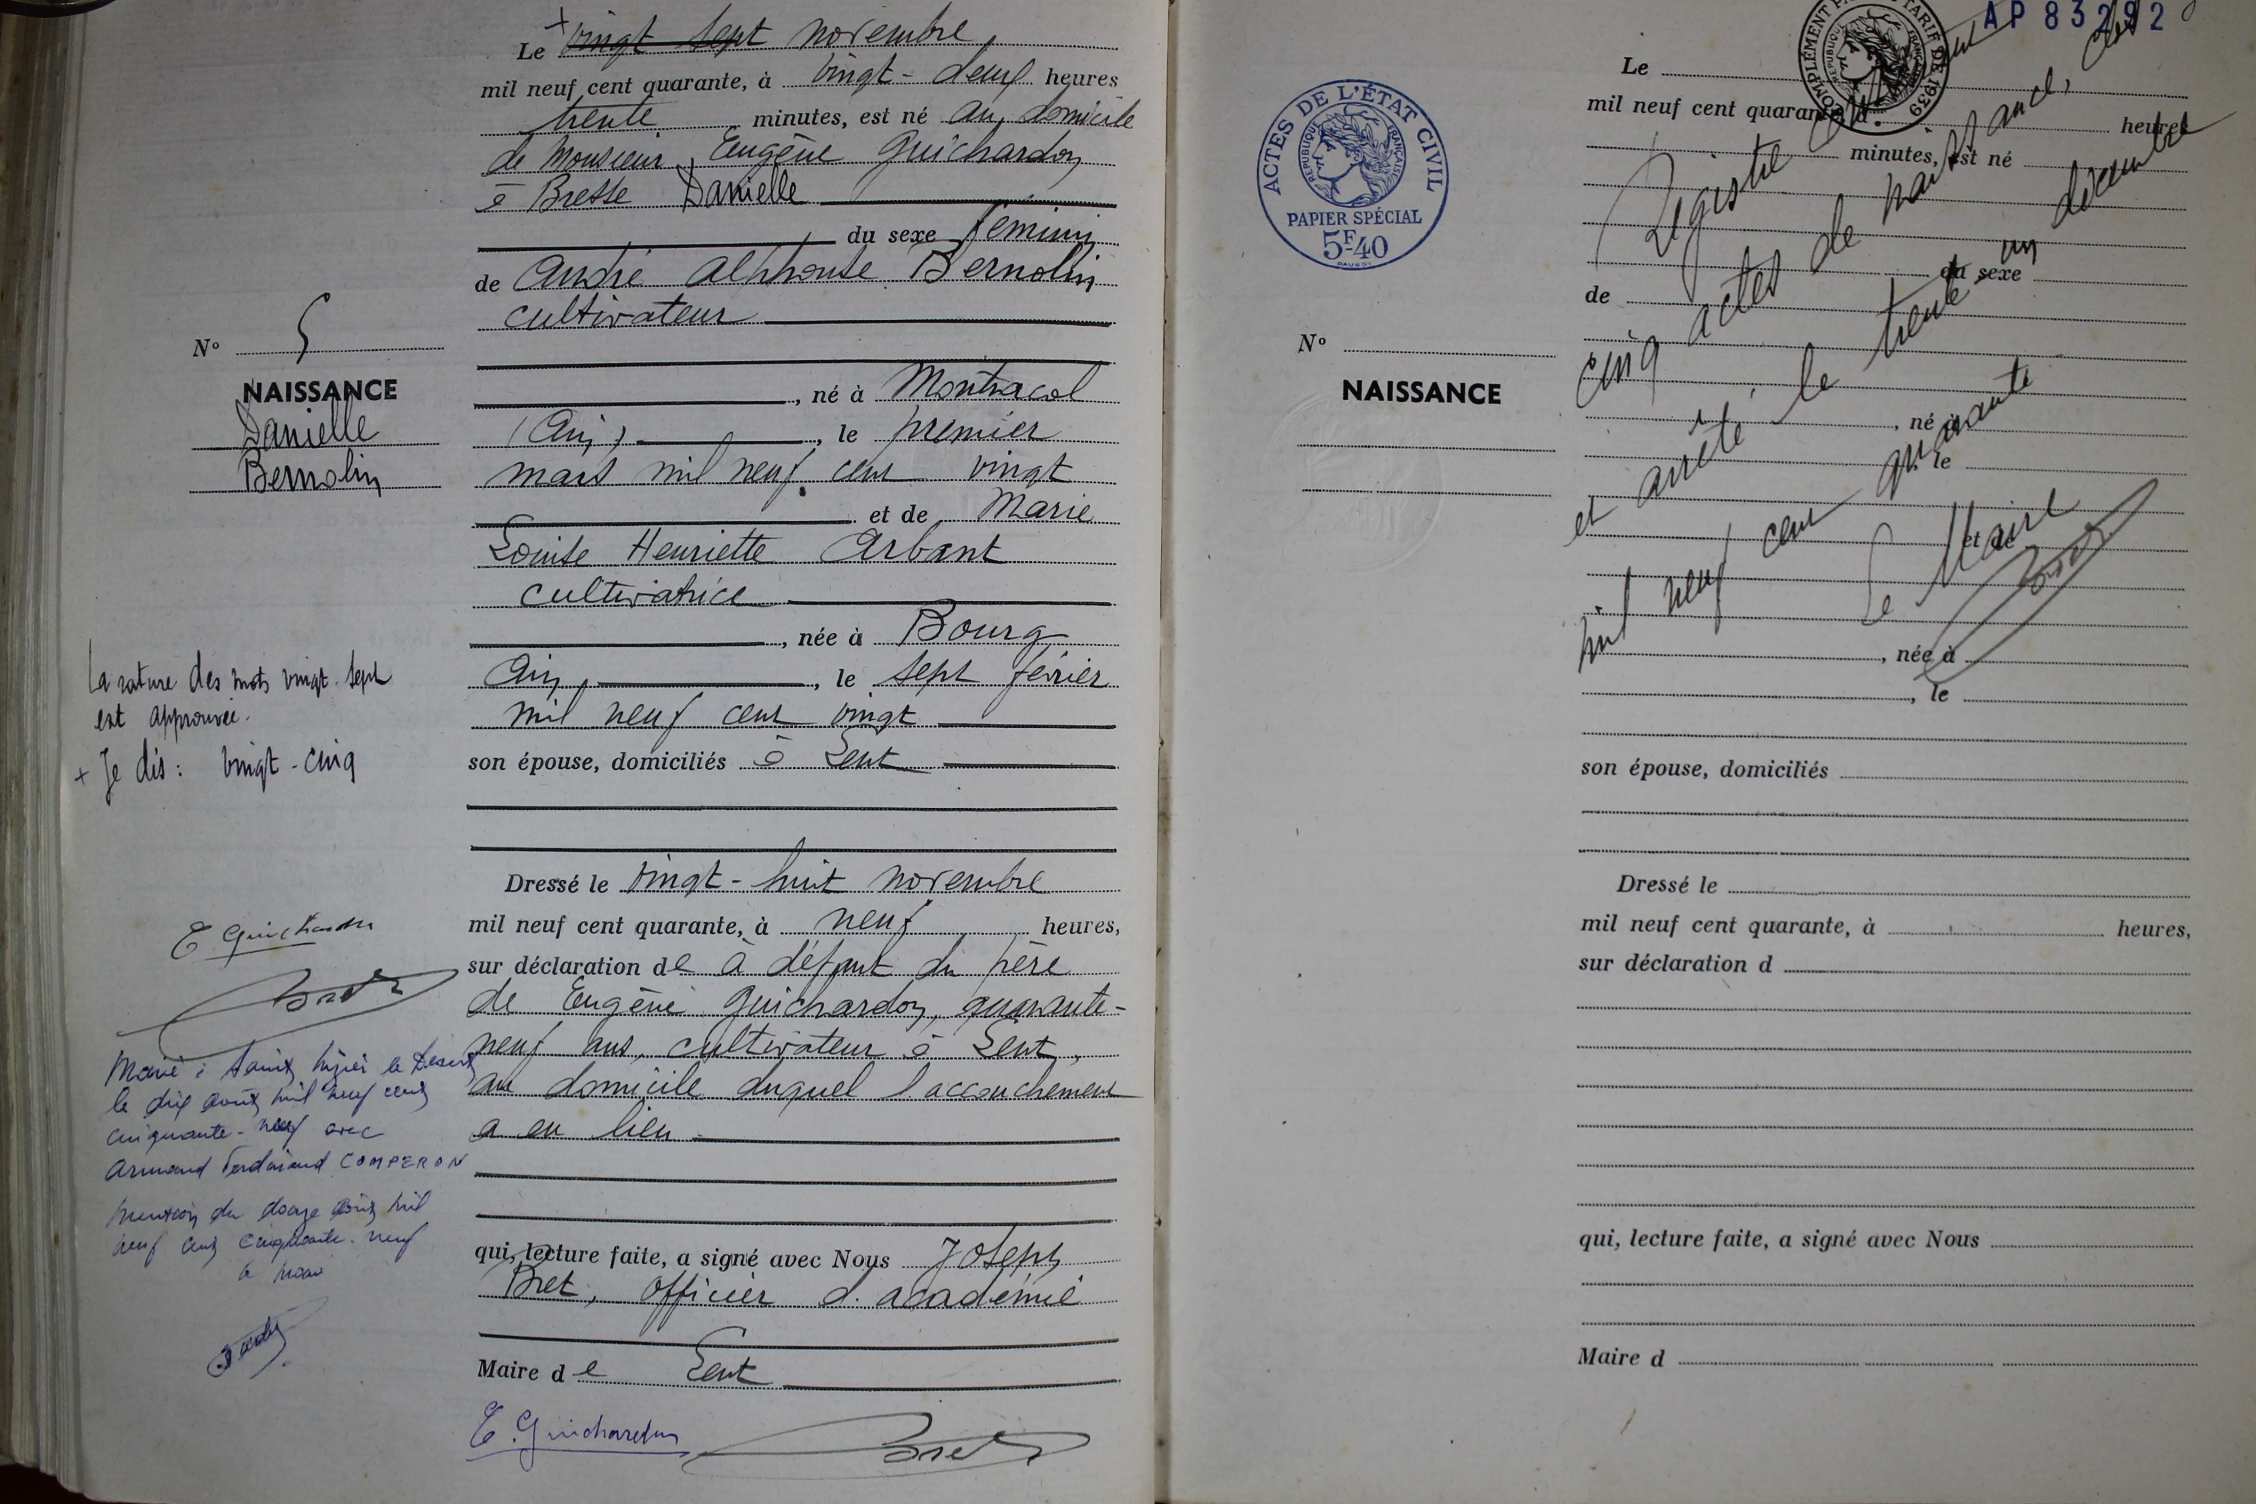 +
Le vingt sept novembre
mil neuf cent quarante, à vingt-deux heures
trente minutes, est né au domicile
de Monsieur Eugène Guichardon
à Bresse Danielle
du sexe féminin
de André Alphonse Bernolin
cultivateur
, né à Montracol
(Ain) , le premier
mars mil neuf cent vingt
et de Marie
Louise Henriette Arbant
cultivatrice
, née à Bourg
Ain , le sept février
mil neuf cent vingt
son épouse, domiciliés à Lent
Dressé le vingt-huit novembre
mil neuf cent quarante, à neuf heures,
sur déclaration de à défaut du père
de Eugène Guichardon, quarante-
neuf ans, cultivateur à Lent,
au domicile duquel l'accouchement
a eu lieu
qui, lecture faite, a signé avec Nous Joseph
Bret, officier d'académie
Maire de Lent
E. Guichardon Bret
N° 5
NAISSANCE
Danielle
Bernolin
La rature des mots vingt-sept
est approuvée.
+ Je dis : vingt-cinq
E Guichardon
Bret
Marié à Saint Nizier le Désert
le dix août mil neuf cent
cinquante-neuf avec
Armand Ferdinand COMPERON
Mention du douze août mil
neuf cent cinquante-neuf
le maire
AP 83292
COMPLÉMENT TARIF DE 1939
RÉPUBLIQUE FRANÇAISE
ACTES DE L'ÉTAT CIVIL
RÉPUBLIQUE FRANÇAISE
PAPIER SPÉCIAL
5F-40
N°
NAISSANCE
Le
mil neuf cent quarante, à heures
minutes, est né
du sexe
de
, né à
, le
et de
, née à
, le
son épouse, domiciliés
Dressé le
mil neuf cent quarante, à heures,
sur déclaration d
qui, lecture faite, a signé avec Nous
Maire d
Registre
cinq actes de naissance, clos
et arrêté le trente un décembre
mil neuf cent quarante
Le Maire
Bret